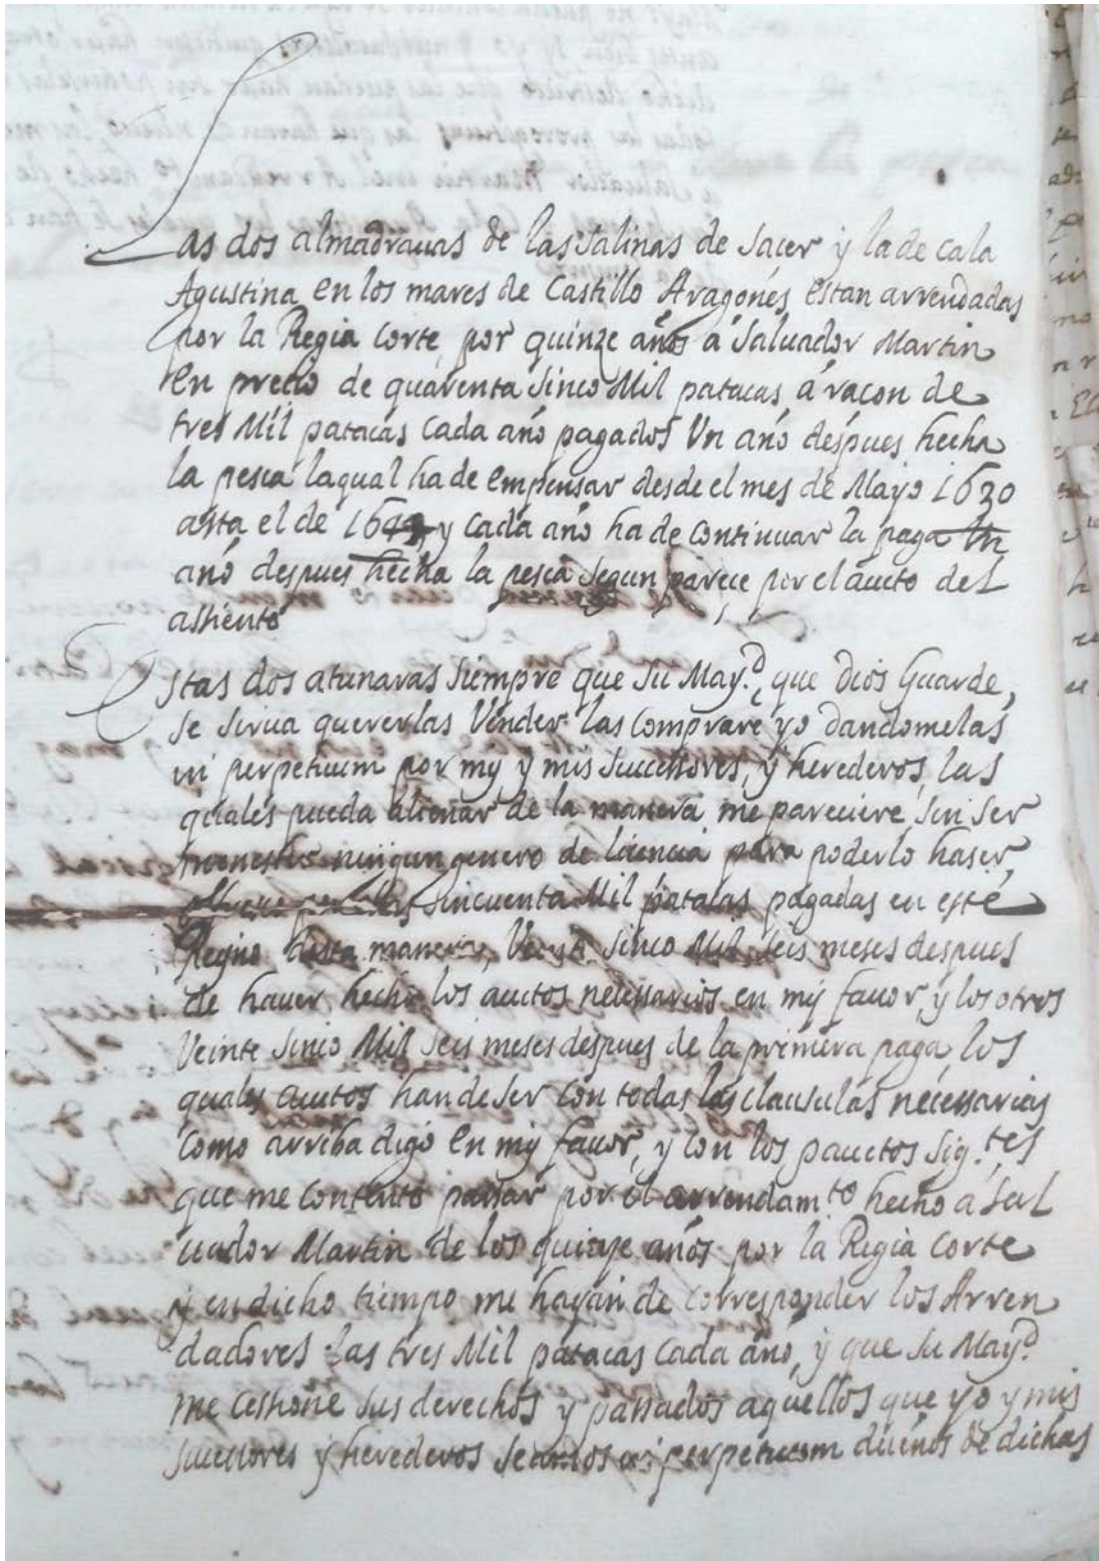 Las dos almadravas de las salinas de Sacer y la de cala
Agustina en los mares de Castillo Aragones estan arrendadas
por la Regia Corte por quinze años a Saluador Martin
en precio de quarenta sinco Mil patacas a racon de
tres Mil patacas cada año pagados Un año despues hecha
la pesca laqual ha de empensar desde el mes de Mayo 1630
asta el de y cada año ha de continuar la paga Un
año despues hecha la pesca segun parece por el aucto del
assiento
Estas dos atunaras siempre que su May.d, que Dios Guarde,
se serua quererlas Vender las comprare yo dandomelas
in perpetuum por my y mis successores, y herederos, las
quales pueda alienar de la manera me pareciere sin ser
menester ningun genero de licencia para poderlo haser,
sincuenta Mil patacas pagadas en este
Regno desta manera, Veinte sinco Mil seis meses despues
de hauer hecho los auctos necessarios en my fauor, y los otros
Veinte sinco Mil seis meses despues de la primera paga, los
quales auctos han de ser con todas las clausulas necessarias
como arriba digo en my fauor, y con los pauctos sig.tes
que me contento passar por el arrendam.to hecho a Sal
uador Martin de los quinze años por la Regia Corte
y en dicho tiempo me hayan de corresponder los Arren
dadores las tres Mil patacas cada año, y que su May.d
me cessione sus derechos y passados aquellos que yo y mis
successores y herederos seamos in perpetuum dueños de dichas